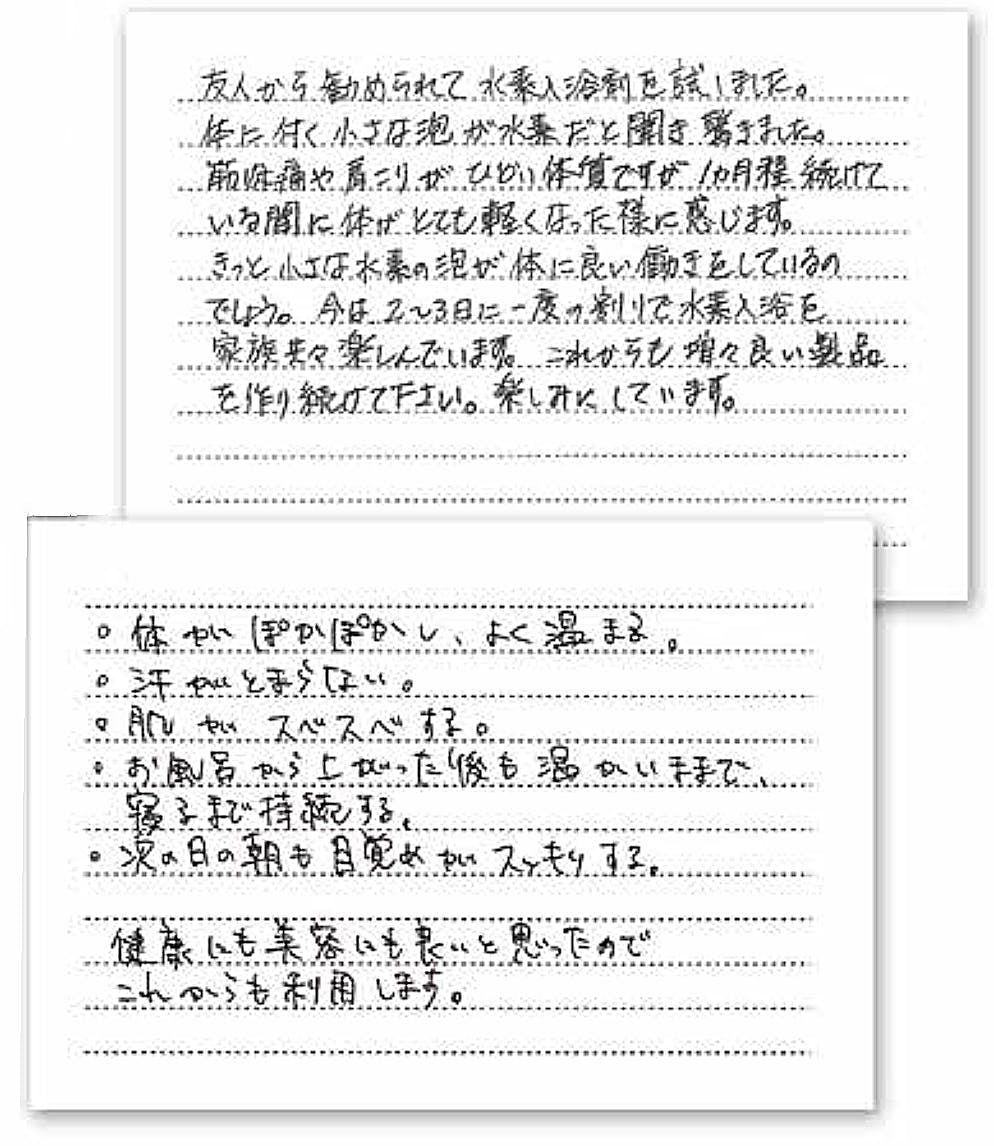 友人から勧められて水素入浴剤を試しました。
体に付く小さな泡が水素だと聞き驚きました。
筋肉痛や肩こりがひどい体質ですが1カ月程続けて
いる間に体がとても軽くなった様に感じます。
きっと小さな水素の泡が体に良い働きをしているの
でしょう。今は2〜3日に一度の割りで水素入浴を
家族共々楽しんでいます。これからも増々良い製品
を作り続けて下さい。楽しみにしています。
○体がぽかぽかし、よく温まる。
○汗がとまらない。
○肌がスベスベする。
○お風呂から上がった後も温かいままで、
寝るまで持続する。
○次の日の朝も目覚めがスッキリする。
健康にも美容にも良いと思ったので
これからも利用します。